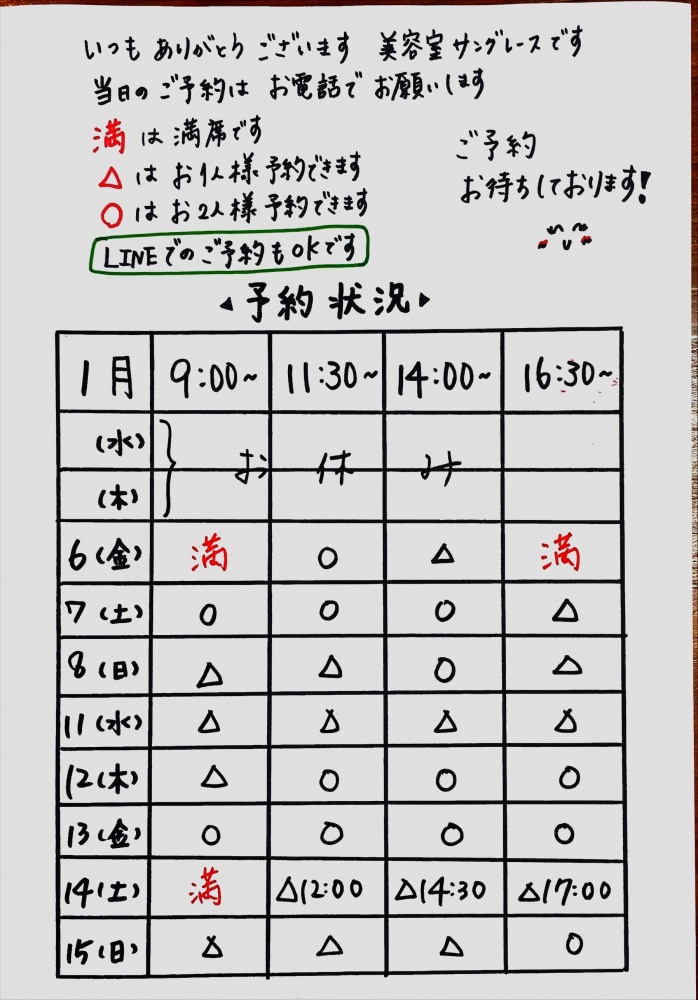 いつも ありがとう ございます 美容室 サングレースです
当日の ご予約は お電話で お願いします
満 は 満席です
△は お1人様 予約できます
○は お2人様 予約できます
LINEでの ご予約も OKです
ご予約
お待ちしております!
予約 状況
1月 9:00~ 11:30~ 14:00~ 16:30~
(水)
お 休 み
(木)
6(金) 満 ○ △ 満
7(土) ○ ○ ○ △
8(日) △ △ ○ △
11(水) △ △ △ △
12(木) △ ○ ○ ○
13(金) ○ ○ ○ ○
14(土) 満 △12:00 △14:30 △17:00
15(日) △ △ △ ○